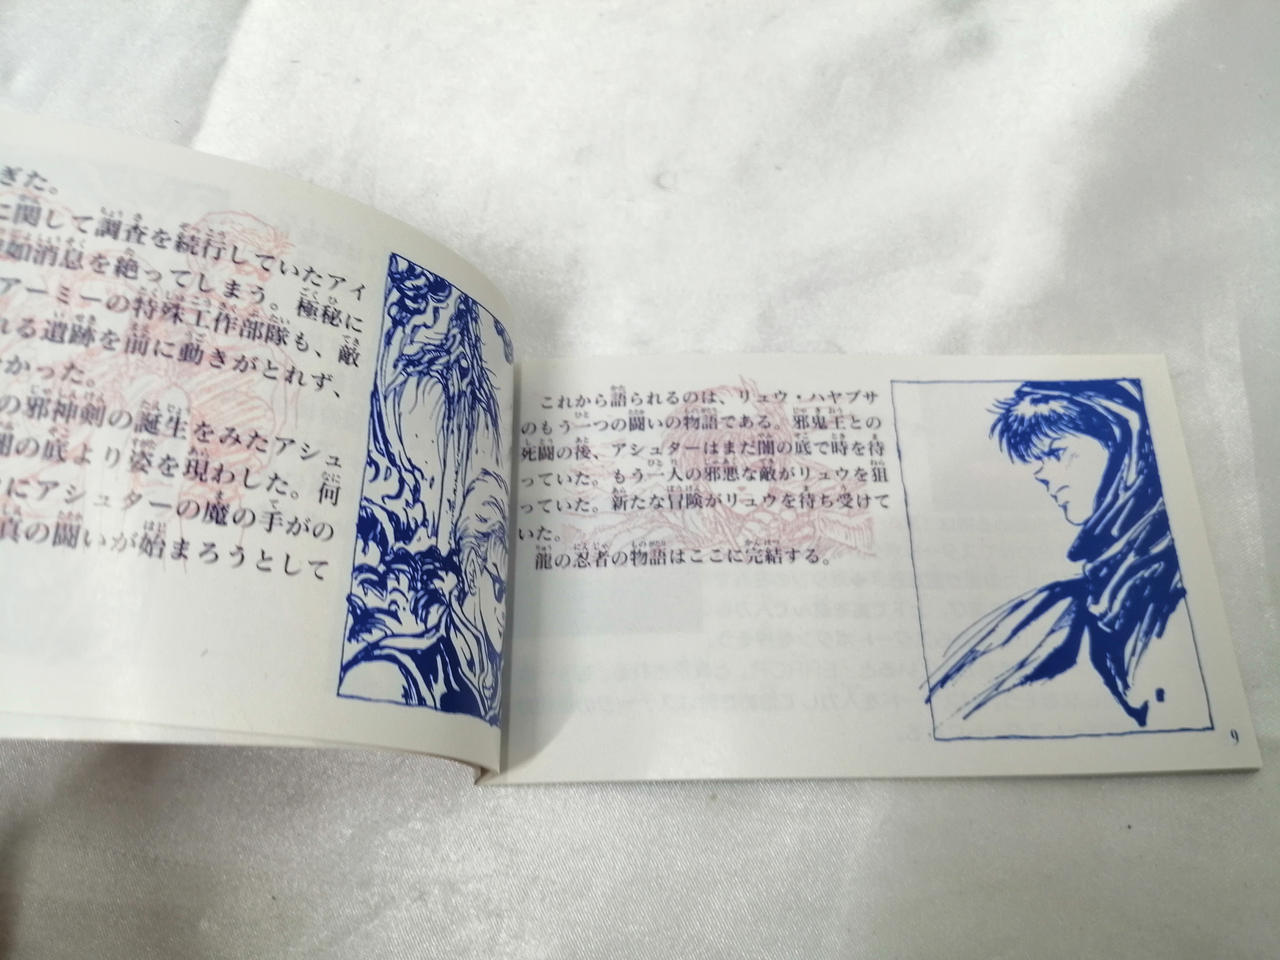 ぎた。
に関して調査を続行していたアイ
如消息を絶ってしまう。極秘に
アーミーの特殊工作部隊も、敵
れる遺跡を前に動きがとれず、
かった。
の邪神剣の誕生をみたアシュ
闇の底より姿を現わした。何
にアシュターの魔の手がの
真の闘いが始まろうとして
これから語られるのは、リュウ・ハヤブサ
のもう一つの闘いの物語である。邪鬼王との
死闘の後、アシュターはまだ闇の底で時を待
っていた。もう一人の邪悪な敵がリュウを狙
っていた。新たな冒険がリュウを待ち受けて
いた。
龍の忍者の物語はここに完結する。
9